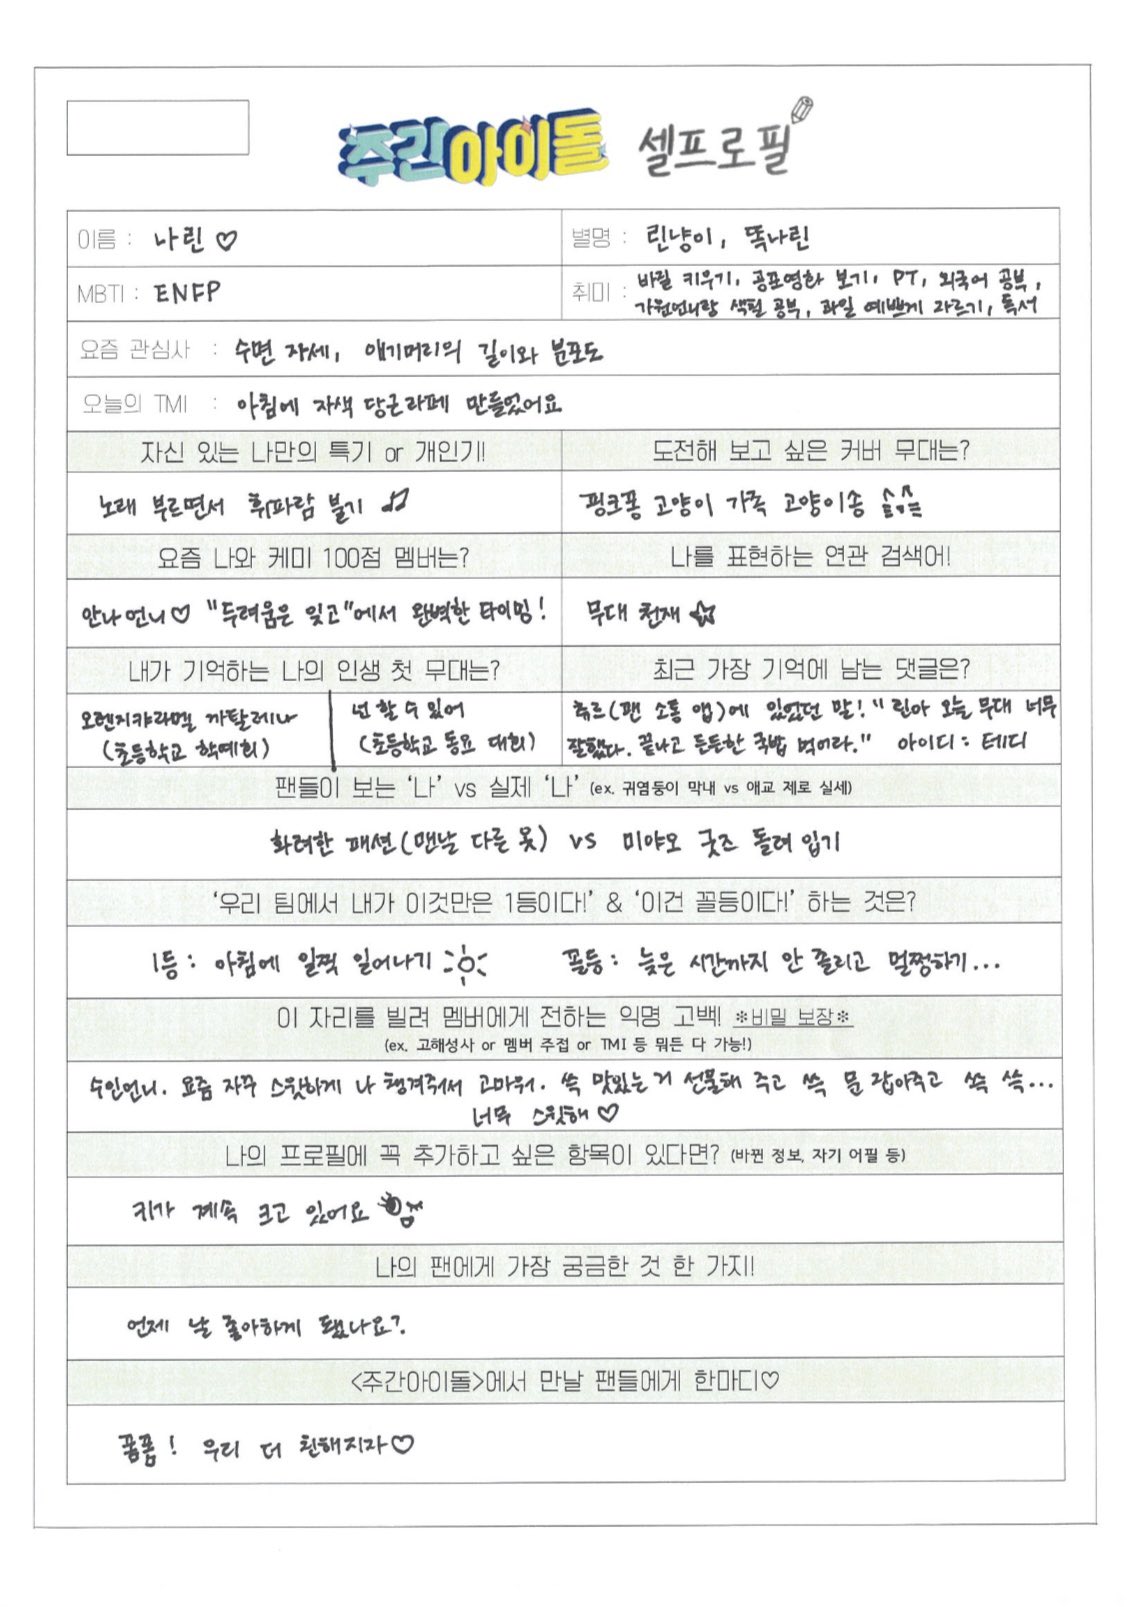 주간아이돌 셀프로필
이름 : 나린♡
별명 : 린냥이, 똑나린
MBTI : ENFP
취미 : 바질 키우기, 공포영화 보기, PT, 외국어 공부,
가원언니랑 색필 공부, 과일 예쁘게 자르기, 독서
요즘 관심사 : 수면 자세, 애기머리의 길이와 분포도
오늘의 TMI : 아침에 자색 당근라페 만들었어요
자신 있는 나만의 특기 or 개인기!
노래 부르면서 휘파람 불기 ♫
도전해 보고 싶은 커버 무대는?
핑크퐁 고양이 가족 고양이송
요즘 나와 케미 100점 멤버는?
안나언니♡ "두려움은 잊고"에서 완벽한 타이밍!
나를 표현하는 연관 검색어!
무대 천재 ☆
내가 기억하는 나의 인생 첫 무대는?
오렌지캬라멜 까탈레나
(초등학교 학예회)
넌 할 수 있어
(초등학교 동요 대회)
최근 가장 기억에 남는 댓글은?
츄르(팬 소통 앱)에 있었던 말! "린아 오늘 무대 너무
잘했다. 끝나고 든든한 국밥 먹어라." 아이디 : 테디
팬들이 보는 '나' vs 실제 '나' (ex. 귀염둥이 막내 vs 애교 제로 실세)
화려한 패션(맨날 다른 옷) vs 미야오 굿즈 돌려 입기
'우리 팀에서 내가 이것만은 1등이다!' & '이건 꼴등이다!' 하는 것은?
1등 : 아침에 일찍 일어나기 꼴등 : 늦은 시간까지 안 졸리고 멀쩡하기...
이 자리를 빌려 멤버에게 전하는 익명 고백! ※비밀 보장※
(ex. 고해성사 or 멤버 주접 or TMI 등 뭐든 다 가능!)
수인언니. 요즘 자꾸 스윗하게 나 챙겨줘서 고마워. 쓱 맛있는 거 선물해 주고 쓱 문 잡아주고 쓱 쓱...
너무 스윗해♡
나의 프로필에 꼭 추가하고 싶은 항목이 있다면? (바뀐 정보, 자기 어필 등)
키가 계속 크고 있어요
나의 팬에게 가장 궁금한 것 한 가지!
언제 날 좋아하게 됐나요?
<주간아이돌>에서 만날 팬들에게 한마디♡
꿈폼! 우리 더 친해지자♡